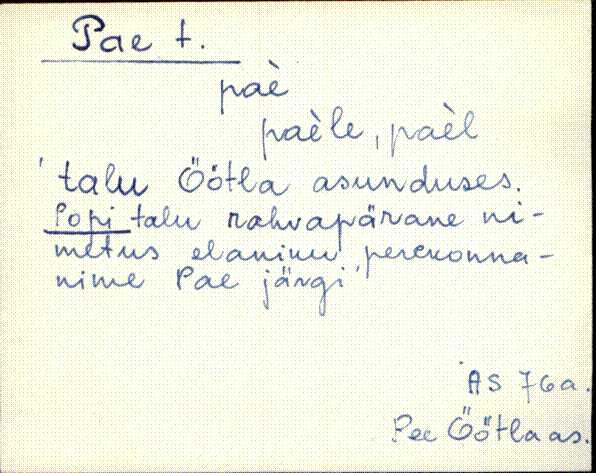 Pae t.
paè
paèle, paèl
'talu Öötla asunduses.
Popi talu rahvapärane ni-
metus elaniku perekonna-
nime Pae järgi'
AS 76a.
Pee Öötla as.